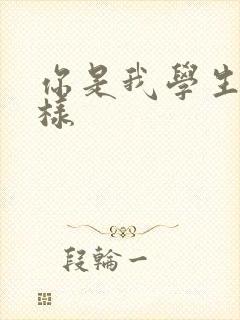 你是我學生
樣
段輪一